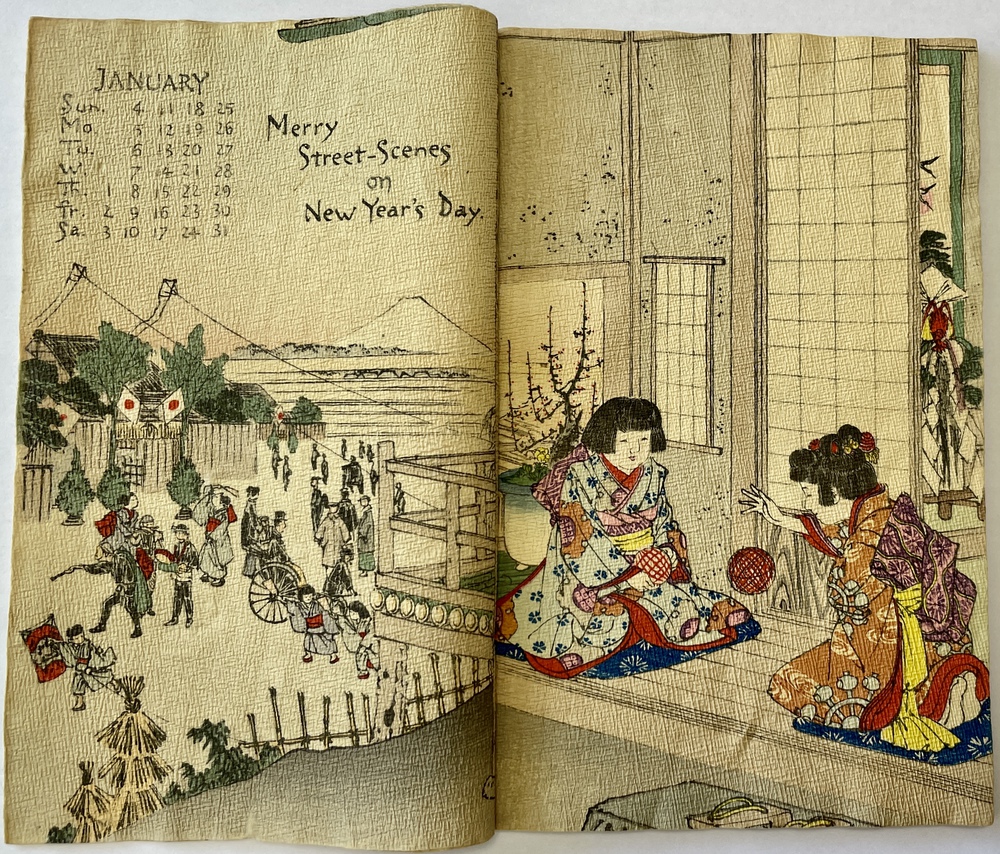 JANUARY
Sun. 4 11 18 25
Mo 5 12 19 26
Tu. 6 13 20 27
W 7 14 21 28
Th. 1 8 15 22 29
Fr. 2 9 16 23 30
Sa. 3 10 17 24 31
Merry
Street-Scenes
on
New Year's Day.